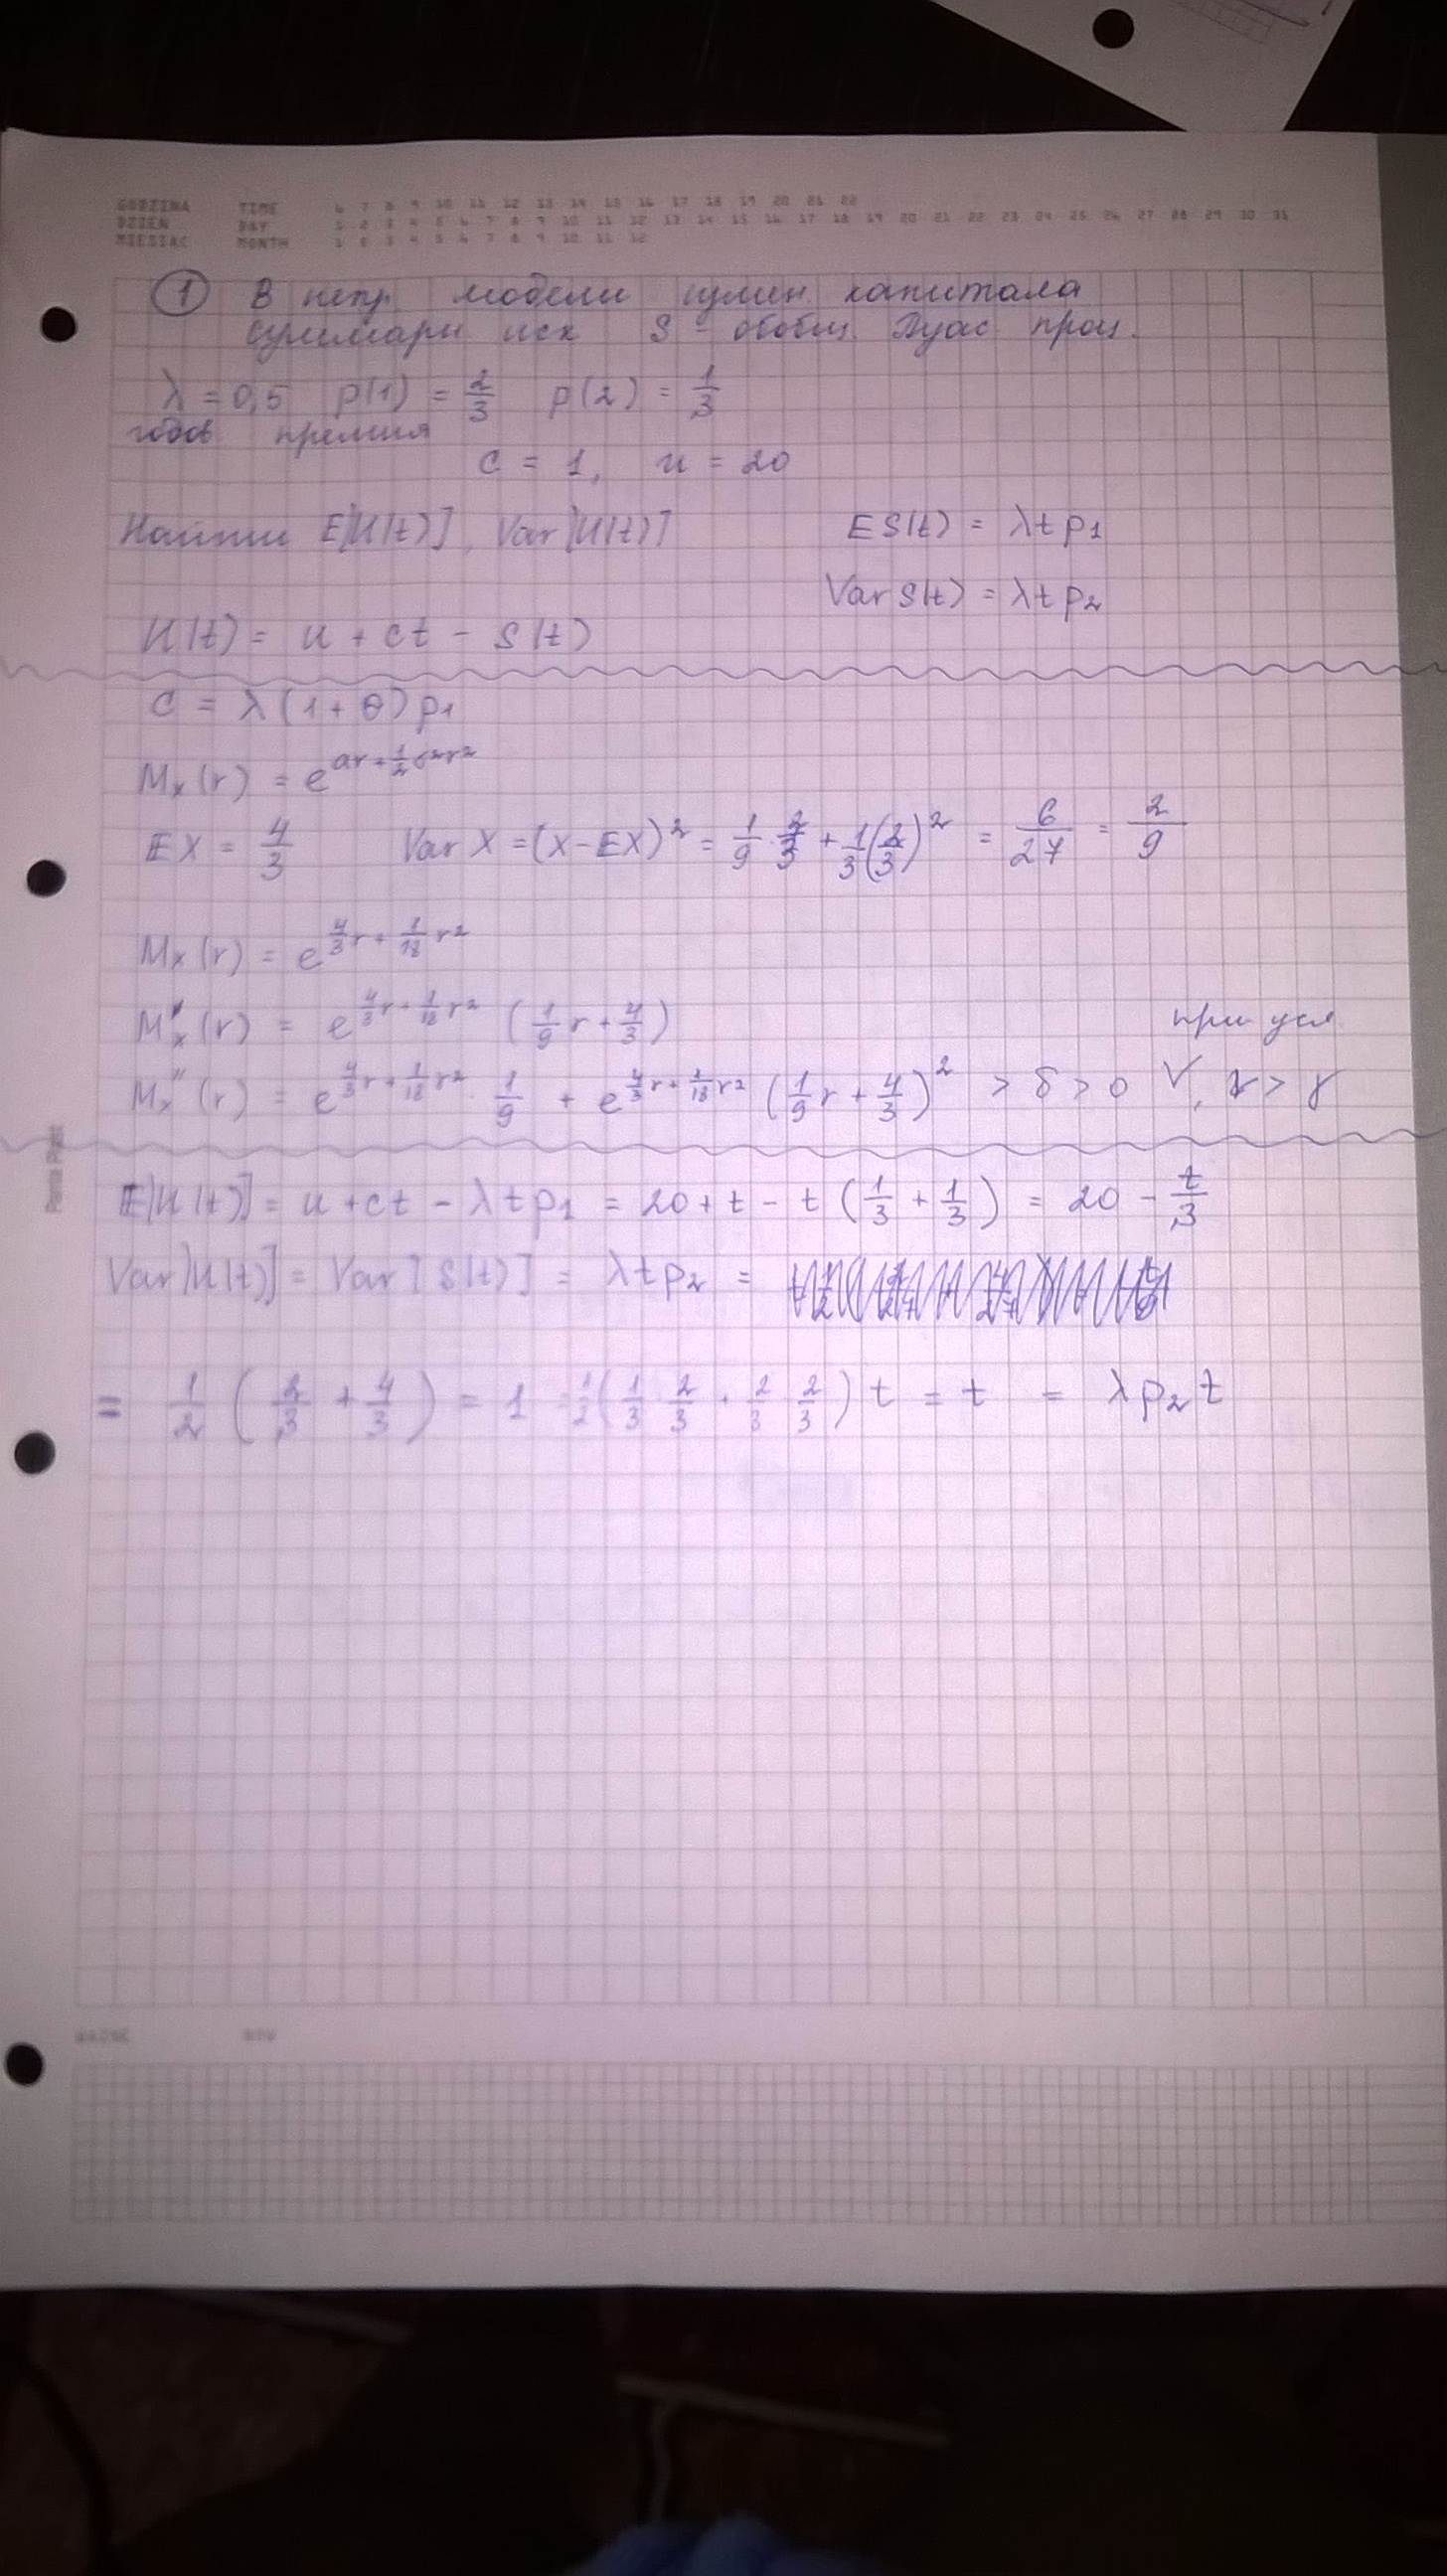 GODZINA TIME 6 7 8 9 10 11 12 13 14 15 16 17 18 19 20 21 22
DZIEŃ DAY 1 2 3 4 5 6 7 8 9 10 11 12 13 14 15 16 17 18 19 20 21 22 23 24 25 26 27 28 29 30 31
MIESIĄC MONTH 1 2 3 4 5 6 7 8 9 10 11 12
① В непр. модели измен. капитала
суммарн иск S - обобщ. Пуас. проц.
λ = 0,5 p(1) = 2/3 p(2) = 1/3
годов. премия
c = 1, u = 20
Найти E[U(t)], Var[U(t)]
ES(t) = λtp₁
Var S(t) = λtp₂
U(t) = u + ct - S(t)
c = λ(1+θ)p₁
Mₓ(r) = e^(ar + 1/2 σ²r²)
EX = 4/3 Var X = (X-EX)² = 1/9 · 2/3 + 1/3(2/3)² = 6/27 = 2/9
Mₓ(r) = e^(4/3 r + 1/18 r²)
Mₓ'(r) = e^(4/3 r + 1/18 r²) (1/9 r + 4/3)
при усл
Mₓ''(r) = e^(4/3 r + 1/18 r²) · 1/9 + e^(4/3 r + 1/18 r²) (1/9 r + 4/3)² > δ > 0 ∀, r > γ
E[U(t)] = u + ct - λtp₁ = 20 + t - t(1/3 + 1/3) = 20 - t/3
Var[U(t)] = Var[S(t)] = λtp₂ =
= 1/2 (2/3 + 4/3) = 1 · 1/2 (1/3 · 2/3 + 2/3 · 2/3) t = t = λp₂t